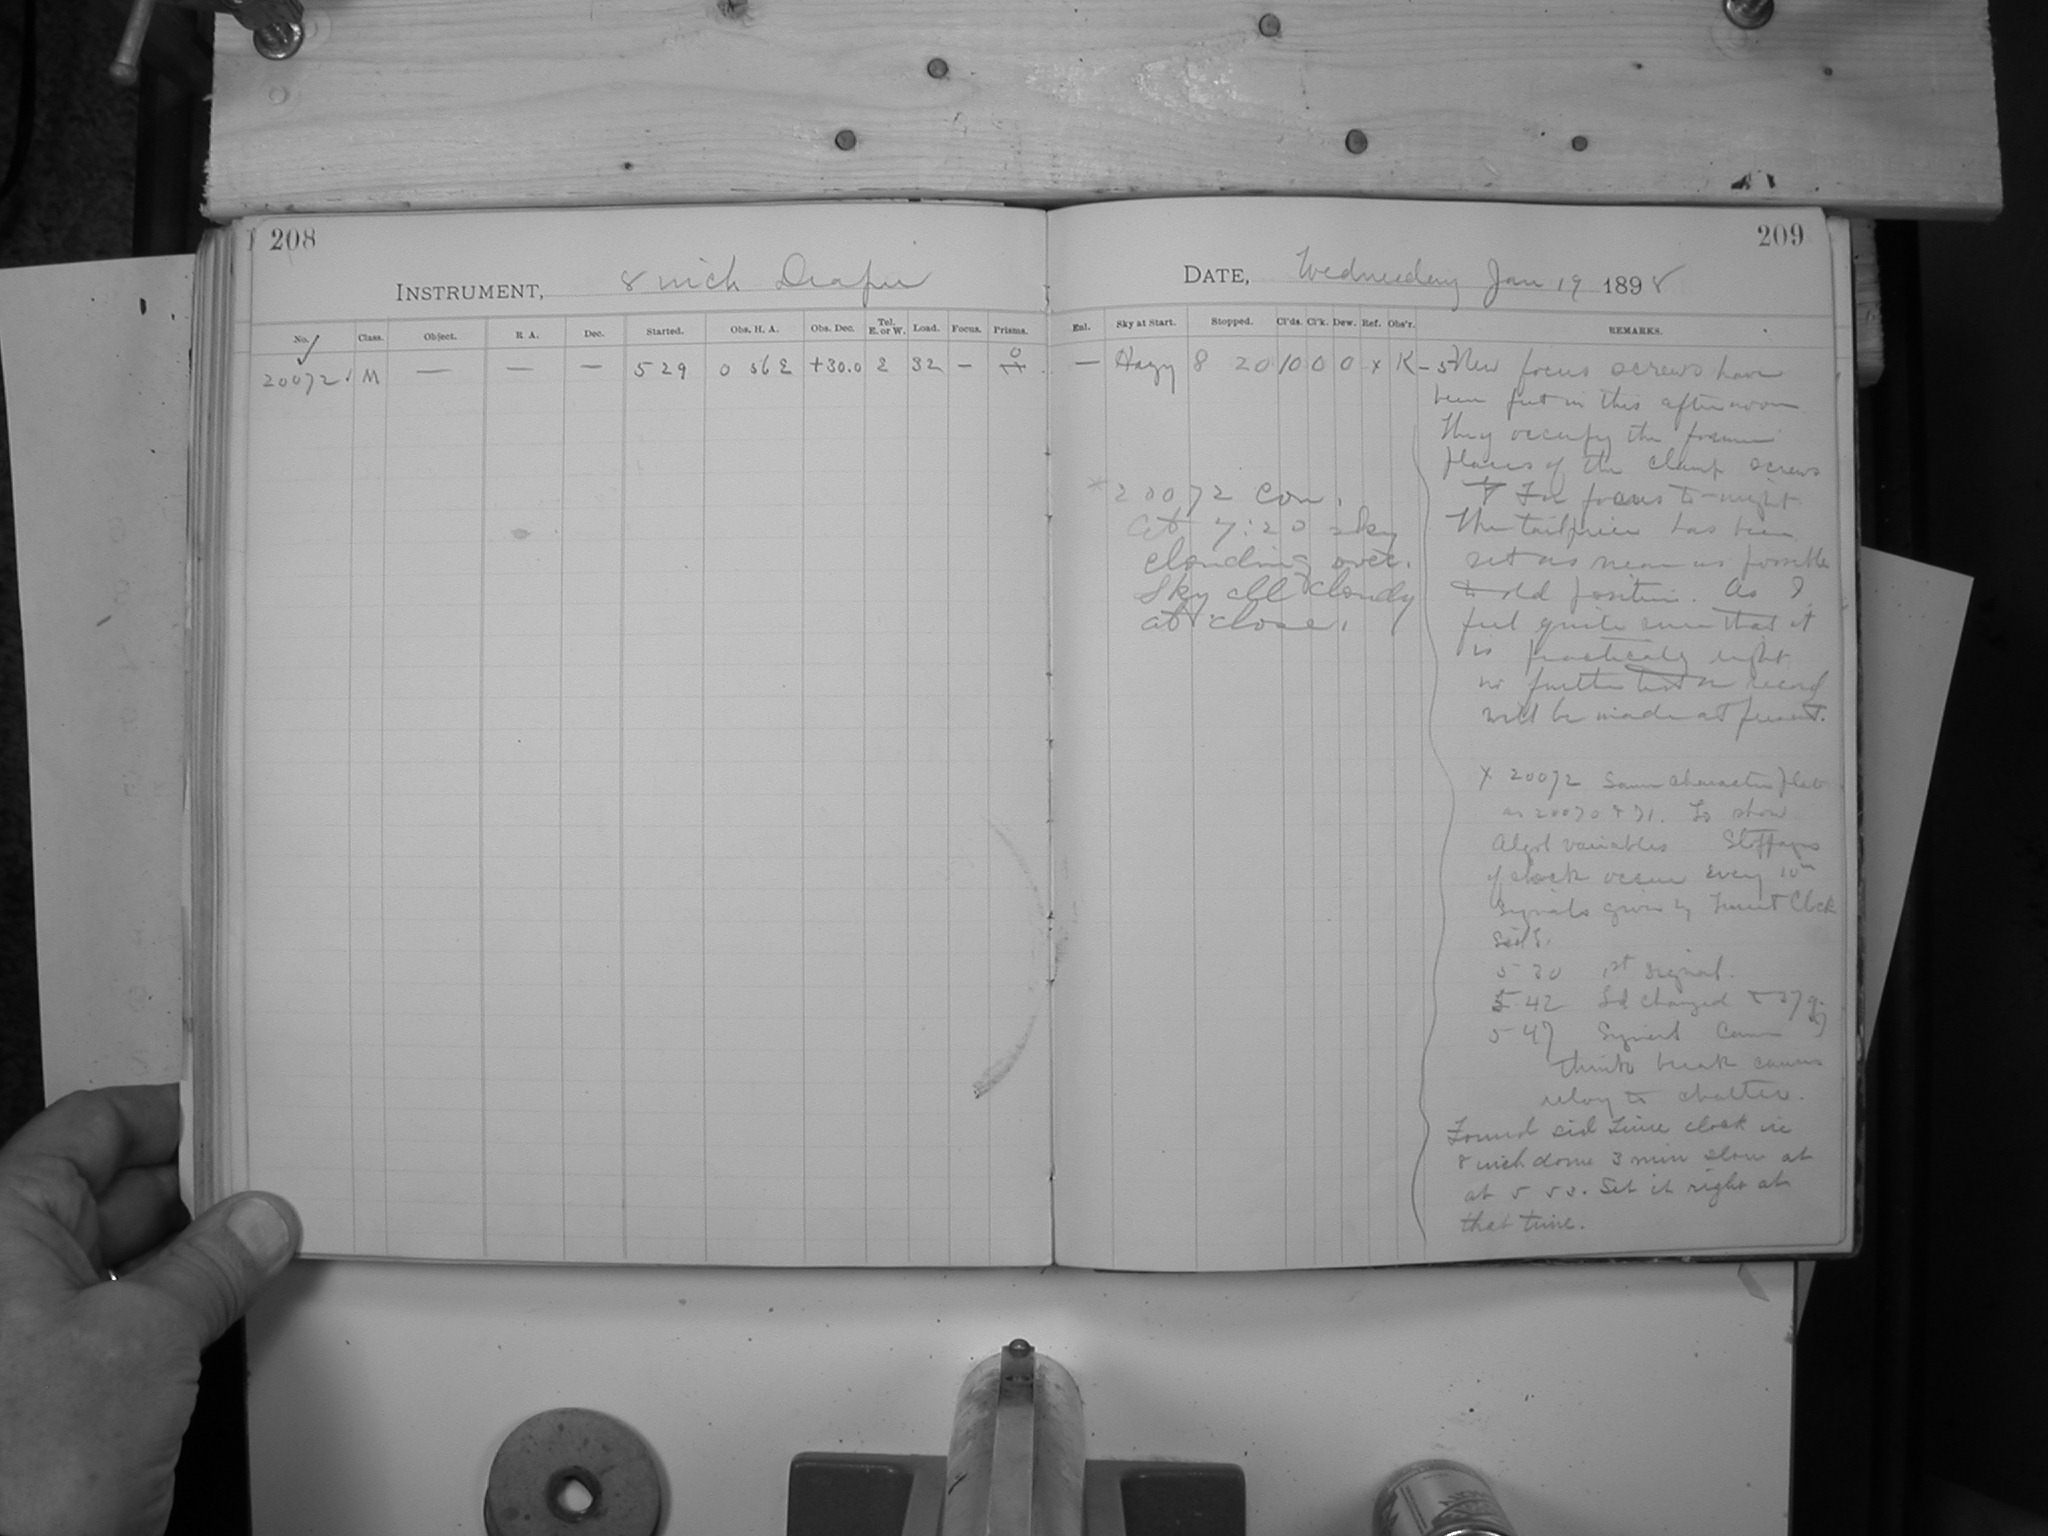 208
INSTRUMENT, 8 inch Draper
No. Class. Object. R. A. Dec. Started. Obs. H. A. Obs. Dec. Tel. E. or W. Load. Focus. Prisms.
20072 M — — — 5 29 0 56 E +30.0 E 32 — 0
209
DATE, Wednesday Jan 19 1898
Enl. Sky at Start. Stopped. Cl'ds. Cl'k. Dew. Ref. Obs'r. REMARKS.
— Hazy 8 20 10 0 0 x K-S
* 20072 con.
at 7:20 sky
clouding over.
Sky all cloudy
at close.
New focus screws have
been put in this afternoon
They occupy the former
places of the clamp screws
For focus to-night
The tailpiece has been
set as near as possible
to old position. As I
feel quite sure that it
is practically right
no further test or record
will be made at present.
x 20072 Same character plate
as 20070 & 71. To show
Algol variables Stoppages
of clock occur every 10m
Signals given by Clock
Sid S.
5 30 1st signal.
5 42 Ld changed to 27
5 47 Signal
Think break causes
relay to chatter.
Found sid time clock in
8 inch dome 3 min slow at
at 5 50. Set it right at
that time.